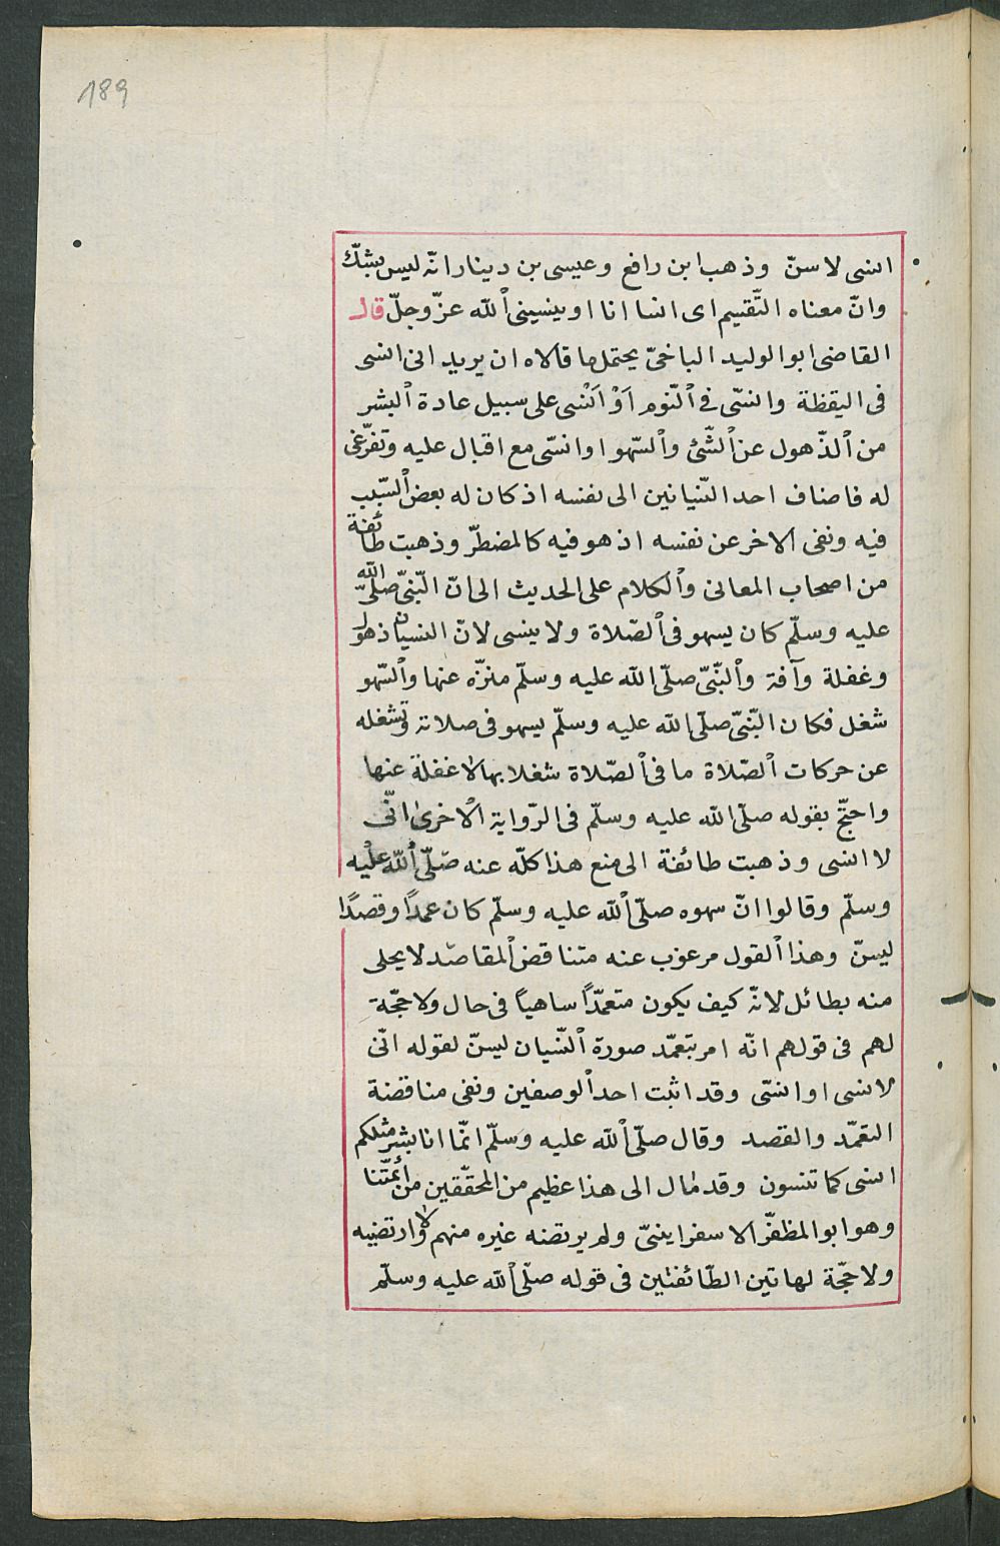 189
انسى لاسنّ وذهب ابن رافع وعيسى بن دينار انّه ليس بشكّ
وانّ معناه التّقسيم اى انسا انا او ينسينى ٱللّه عزّ وجلّ قال
القاضى ابو الوليد الباخىّ يحتمل ما قالاه ان يريد انى انسى
فى اليقظة وانسّى فى ٱلنّوم اَوْ اَنْسى على سبيل عادة ٱلبشر
من ٱلذّهول عن ٱلشّئ وٱلسّهو او انسّى مع اقبال عليه وتفرّغى
له فاضاف احد النّسيانين الى نفسه اذ كان له بعض ٱلسّبب
فيه ونفى الاخر عن نفسه اذ هو فيه كالمضطرّ وذهبت طائفة
من اصحاب المعانى وٱلكلام على الحديث الى انّ النّبىّ صلّى اللّه
عليه وسلّم كان يسهو فى ٱلصّلاة ولا ينسى لانّ النسيان ذهول
وغفلة وآفة وٱلنّبىّ صلّى اللّه عليه وسلّم منزّه عنها وٱلسّهو
شغل فكان النّبىّ صلّى اللّه عليه وسلّم يسهو فى صلاته وتشغله
عن حركات ٱلصّلاة ما فى ٱلصّلاة شغلا بها لا غفلة عنها
واحتجّ بقوله صلّى اللّه عليه وسلّم فى الرّواية الاخرى انّى
لا انسى وذهبت طائفة الى منع هذا كلّه عنه صلّى ٱللّه عليه
وسلّم وقالوا انّ سهوه صلّى ٱللّه عليه وسلّم كان عمدًا وقصدًا
ليسنّ وهذا ٱلقول مرغوب عنه متناقض ٱلمقاصد لا يحلى
منه بطائل لانّه كيف يكون متعمّدًا ساهيًا فى حال ولا حجّة
لهم فى قولهم انّه امر بتعمّد صورة ٱلنّسيان ليسنّ لقوله انّى
لانسى او انسّى وقد اثبت احد ٱلوصفين ونفى مناقضة
التعمّد والقصد وقال صلّى ٱللّه عليه وسلّم انّما انا بشر مثلكم
انسى كما تنسون وقد مال الى هذا عظيم من المحقّقين من ائمّتنا
وهو ابو المظفّر الاسفراينىّ ولم يرتضه غيره منهم ولا ارتضيه
ولا حجّة لهاتين الطّائفتين فى قوله صلّى ٱللّه عليه وسلّم